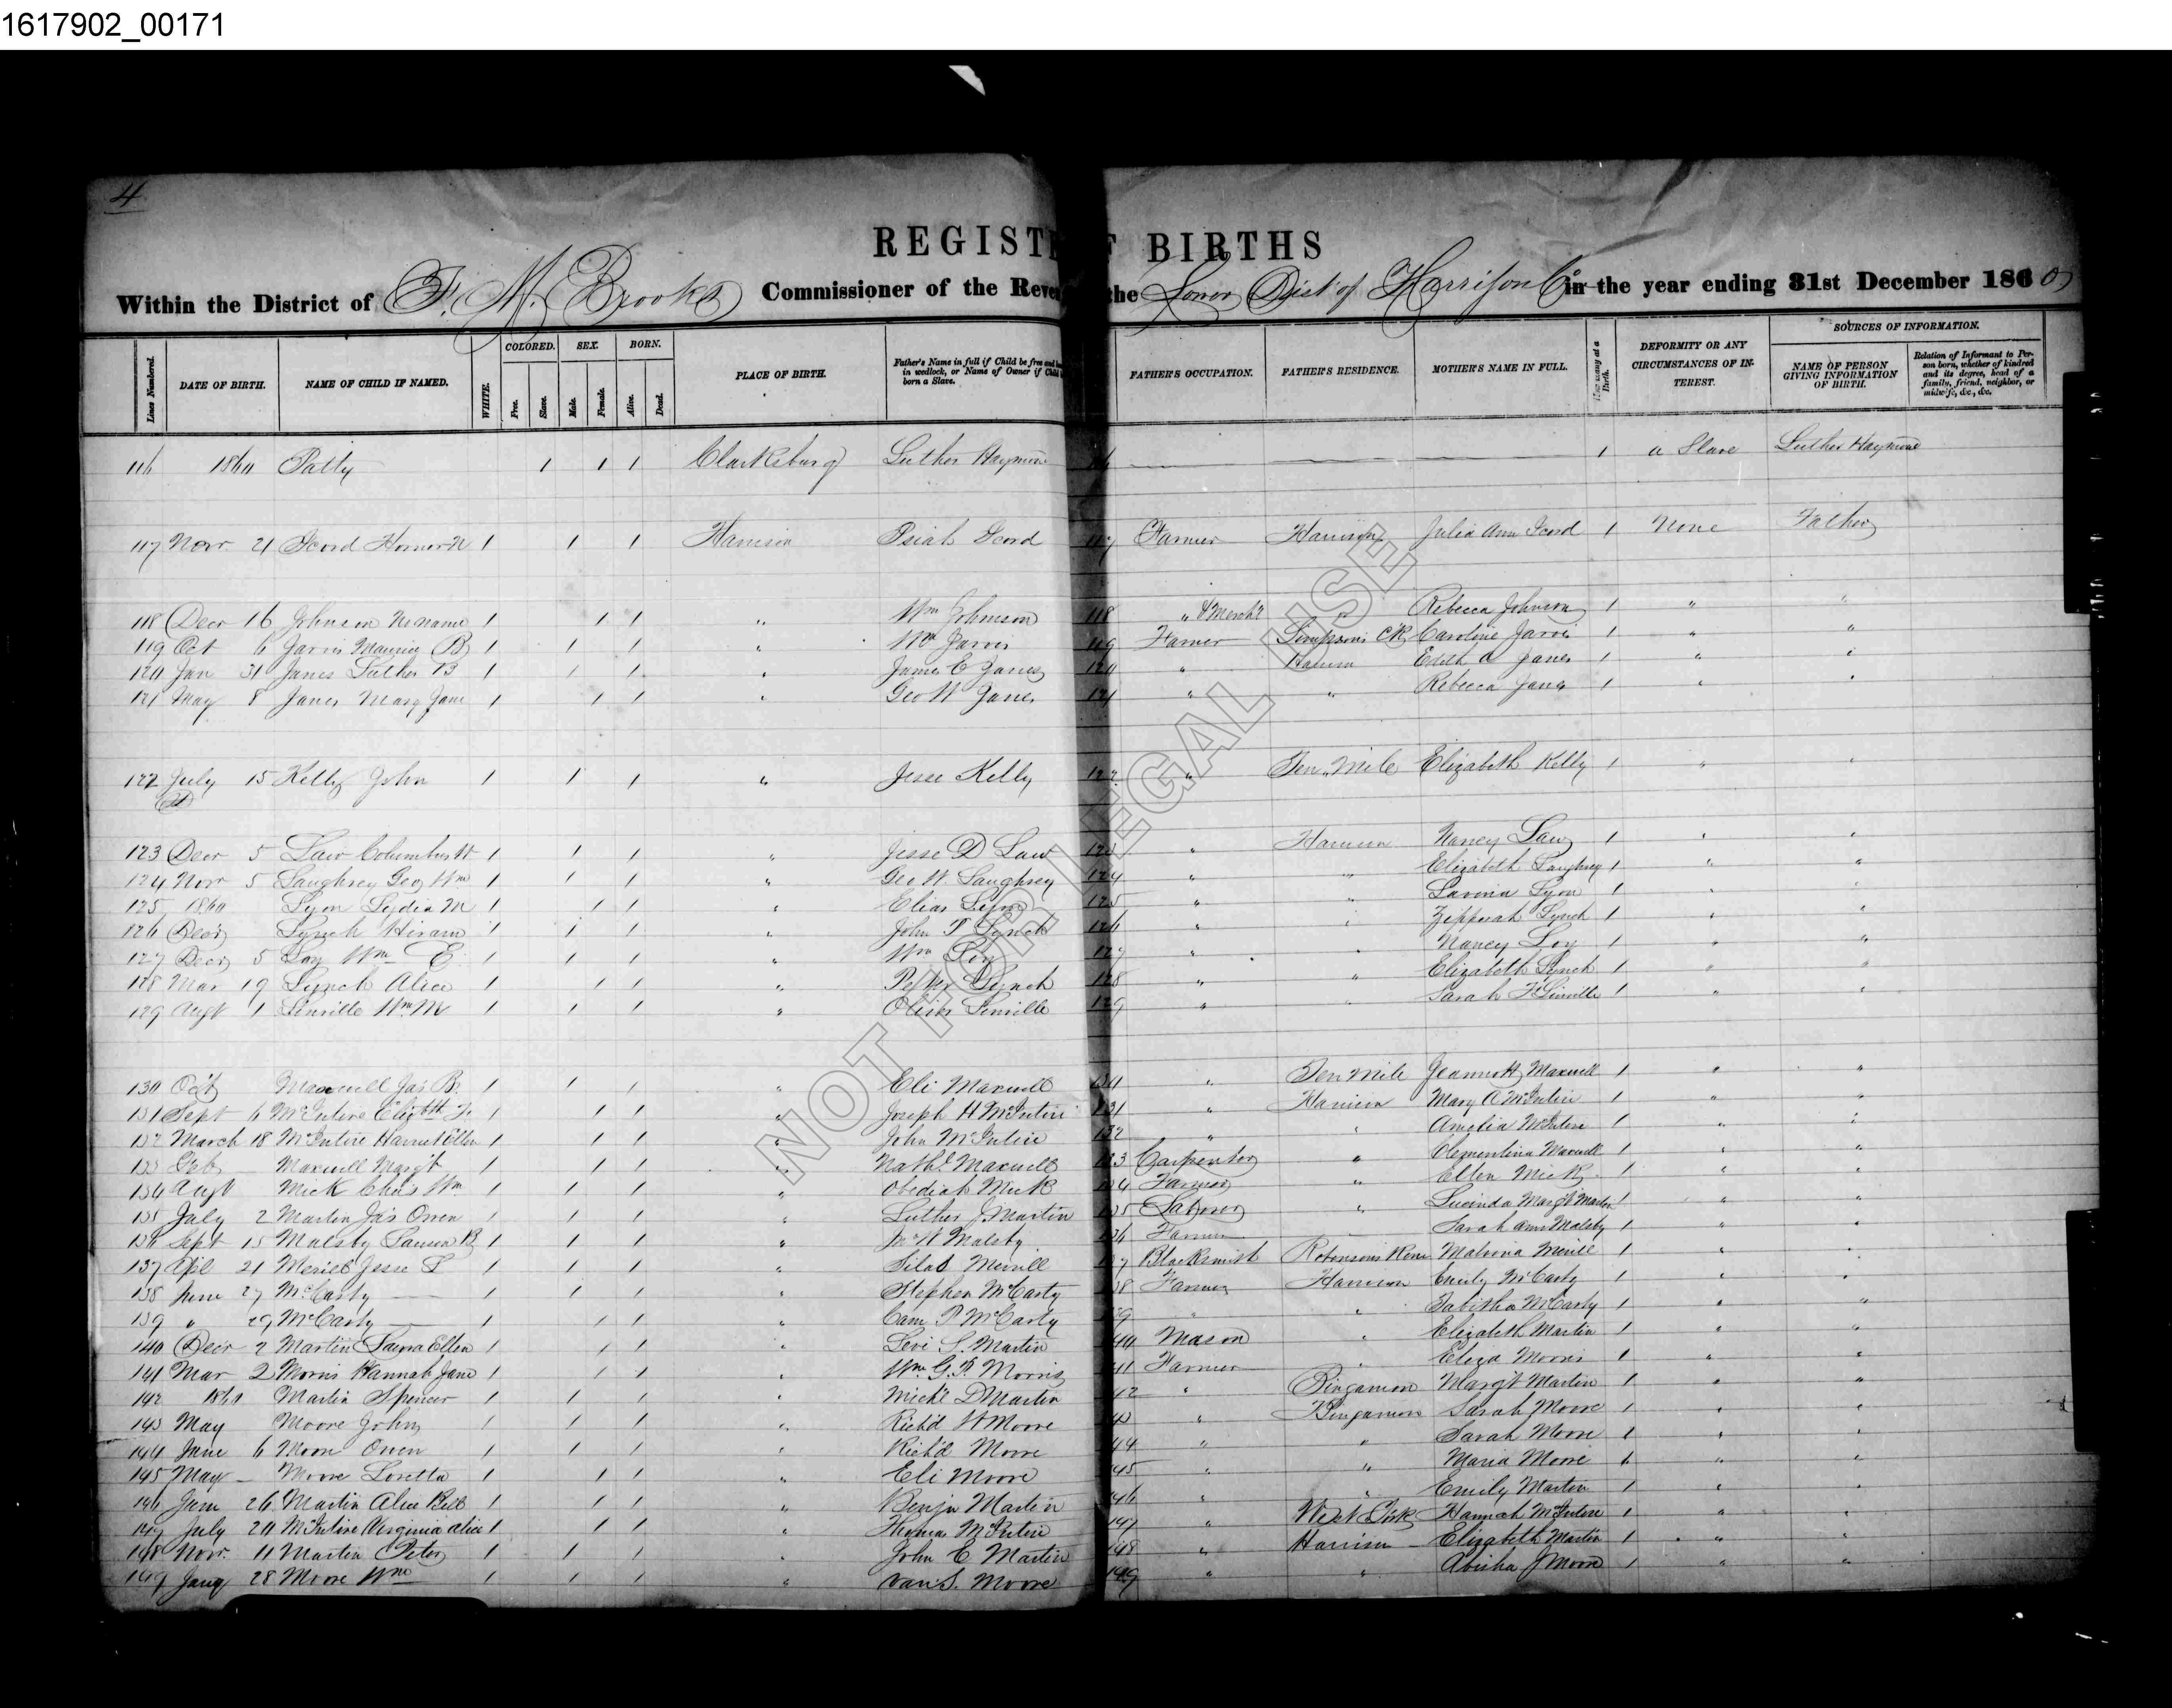 1617902_00171
4
REGIST F BIRTHS
Within the District of F. M. Brooks Commissioner of the Reve the Lower Dist of Harrison Co in the year ending 31st December 1860
Lines Numbered. DATE OF BIRTH. NAME OF CHILD IF NAMED. WHITE. COLORED. Free. Slave. SEX. Male. Female. BORN. Alive. Dead. PLACE OF BIRTH. Father's Name in full if Child be free and in wedlock, or Name of Owner if Child born a Slave. FATHER'S OCCUPATION. FATHER'S RESIDENCE. MOTHER'S NAME IN FULL. How many at a Birth. DEFORMITY OR ANY CIRCUMSTANCES OF INTEREST. SOURCES OF INFORMATION. NAME OF PERSON GIVING INFORMATION OF BIRTH. Relation of Informant to Person born, whether of kindred and its degree, head of a family, friend, neighbor, or midwife, &c., &c.
116 1860 Patty 1 1 1 Clarksburg Luther Haymond 1 a Slave Luther Haymond
117 Novr 21 Homer N 1 1 1 Harrison 117 Farmer Harrison Julia Ann 1 None Father
118 Decr 16 Johnson No name 1 1 1 " Wm Johnson 118 " & Mercht " Rebecca Johnson 1 " "
119 Oct 6 Jarvis B 1 1 1 " Wm Jarvis 119 Farmer Simpsons Ck Caroline Jarvis 1 " "
120 Jan 31 Janes Luther B 1 1 1 " James C Janes 120 " Harrison Edith A Janes 1 " "
121 May 8 Janes Mary Jane 1 1 1 " Geo W Janes 121 " " Rebecca Janes 1 " "
122 July 15 Kelly John 1 1 1 " Jesse Kelly 122 " Ten Mile Elizabeth Kelly 1 " "
123 Decr 5 Law Columbus W 1 1 1 " Jesse D Law 123 " Harrison Nancy Law 1 " "
124 Novr 5 Laughrey Geo Wm 1 1 1 " Geo W Laughrey 124 " " Elizabeth Laughrey 1 " "
125 1860 Lyon Lydia M 1 1 1 " Elias Lyon 125 " " Lavina Lyon 1 " "
126 Decr Lynch Hiram 1 1 1 " John P Lynch 126 " " Zipporah Lynch 1 " "
127 Decr 5 Loy Wm E. 1 1 1 " Wm Loy 127 " " Nancy Loy 1 " "
128 Mar 19 Lynch Alice 1 1 1 " Peter Lynch 128 " " Elizabeth Lynch 1 " "
129 Augt 1 Linville Wm M 1 1 1 " Oliver Linville 129 " " Sarah F Linville 1 " "
130 Oct Maxwell Jas B. 1 1 1 " Eli Maxwell 130 " Ten Mile Maxwell 1 " "
131 Sept 6 McIntire Elizbth 1 1 1 " Joseph H McIntire 131 " Harrison Mary A McIntire 1 " "
132 March 18 McIntire Harriet Ellen 1 1 1 " John McIntire 132 " " Amelia McIntire 1 " "
133 Feb — Maxwell Margt 1 1 1 " Nathl Maxwell 133 Carpenter " Clementina Maxwell 1 " "
134 Augt Mick Chas Wm 1 1 1 " Obediah Mick 134 Farmer " Ellen Mick 1 " "
135 July 2 Martin Jas Owen 1 1 1 " Luther J Martin 135 Laborer " Lucinda Margt Martin 1 " "
136 Sept 15 Malsby B 1 1 1 " Malsby 136 Farmer Sarah Ann Malsby 1 " "
137 Apl 21 Merill Jesse L 1 1 1 " Silas Merrill 137 Blacksmith Robinsons Run Malvina Merill 1 " "
138 June 27 McCarty — 1 1 1 " Stephen McCarty 138 Farmer Harrison Emily McCarty 1 " "
139 " 29 McCarty — 1 1 1 " Cam P McCarty 139 " " Tabitha McCarty 1 " "
140 Decr 2 Martin Laura Ellen 1 1 1 " Levi S. Martin 140 Mason " Elizabeth Martin 1 " "
141 Mar 2 Morris Hannah Jane 1 1 1 " Wm G. P. Morris 141 Farmer " Eliza Morris 1 " "
142 1860 Martin Spencer 1 1 1 " Michl D Martin 142 " Bingamon Margt Martin 1 " "
143 May Moore John 1 1 1 " Richd W Moore 143 " Bingamon Sarah Moore 1 " "
144 June 6 Moore Owen 1 1 1 " Richd Moore 144 " " Sarah Moore 1 " "
145 May — Moore Loretta 1 1 1 " Eli Moore 145 " " Maria Moore 1 " "
146 Jany 26 Martin Alice Bell 1 1 1 " Benjn Martin 146 " " Emily Martin 1 " "
147 July 20 McIntire Virginia Alice 1 1 1 " Thomas McIntire 147 " West Fork Hannah McIntire 1 " "
148 Novr. 11 Martin Peter 1 1 1 " John E Martin 148 " Harrison Elizabeth Martin 1 " "
149 Jany 28 Moore Wm 1 1 1 " Van S. Moore 149 " " Abisha J Moore 1 " "
NOT FOR LEGAL USE